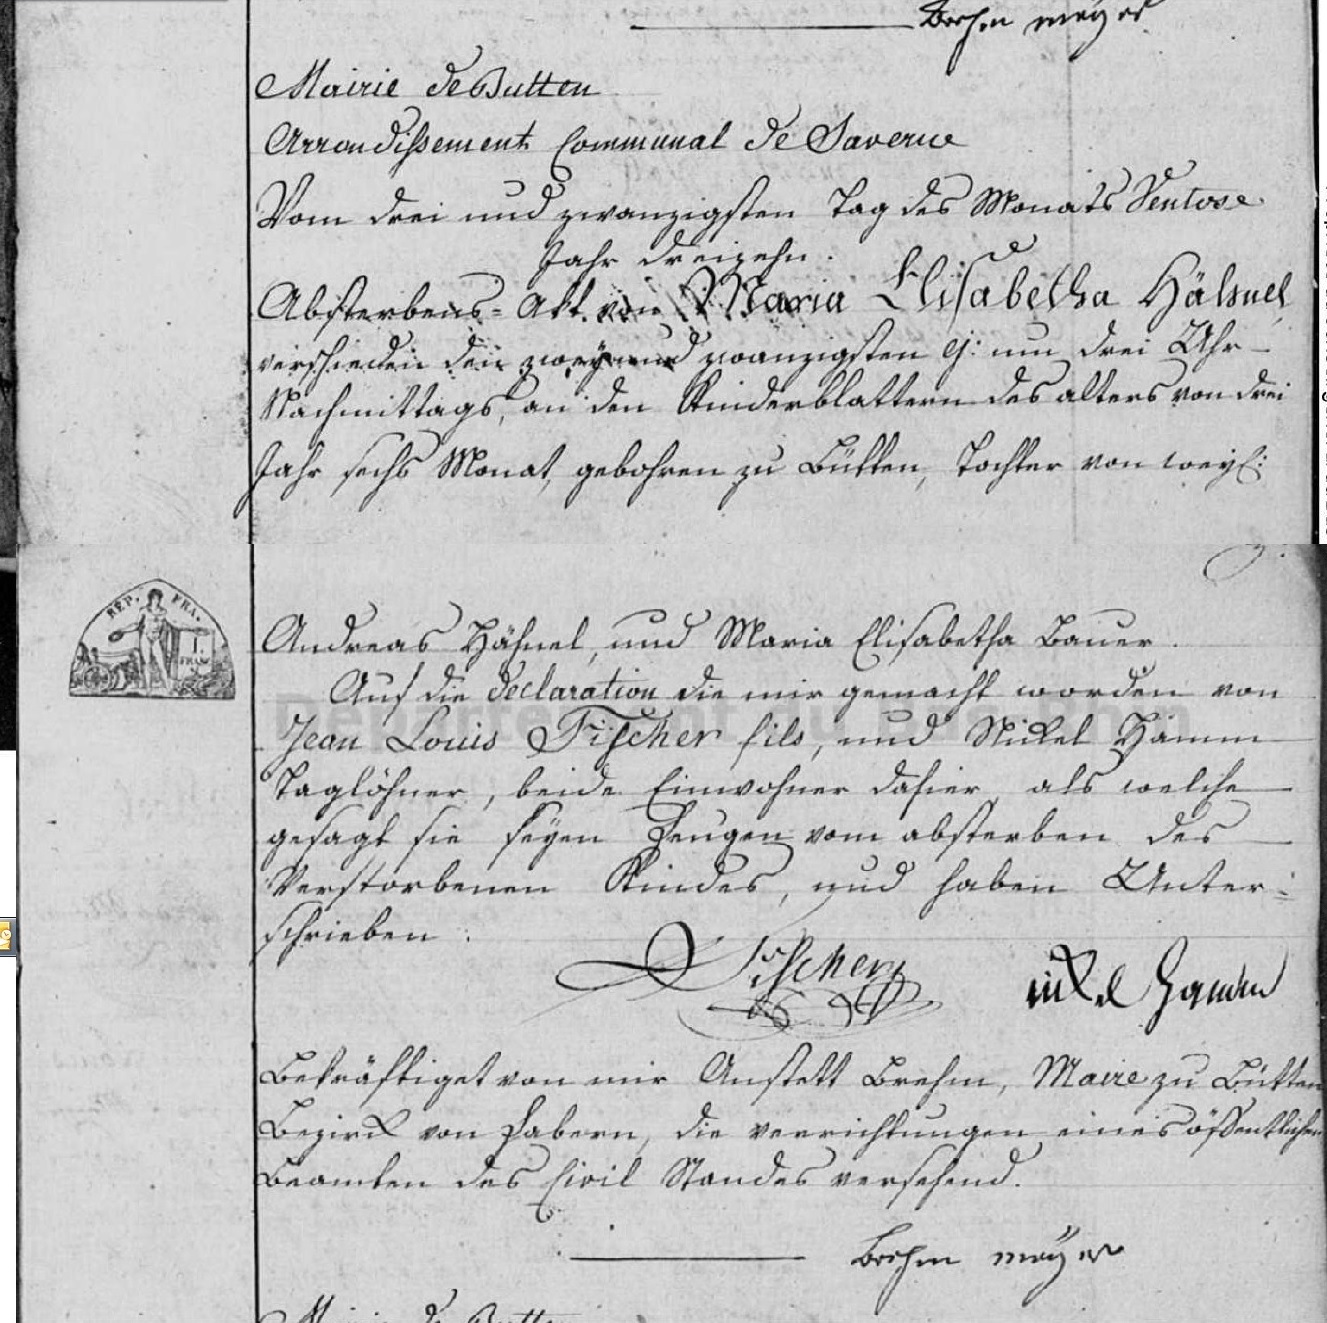 Brehm meyer
Mairie de Butten
Arrondissement Communal de Saverne
Vom drei und zwanzigsten Tag des Monats Ventose
Jahr dreizehn.
Absterbens-Akt von Maria Elisabetha Hähnel,
verschieden den zwey und zwanzigsten ej: um drei Uhr
Nachmittags, an den Kinderblattern des alters von drei
Jahr sechs Monat, gebohren zu Bütten, Tochter von weyl:
Andreas Hähnel, und Maria Elisabetha Bauer.
Auf die Declaration die mir gemacht worden von
Jean Louis Fischer fils, und Nickel Hamm
Taglöhner, beide Einwohner dahier, als welche
gesagt sie seyen Zeugen vom absterben des
Verstorbenen Kindes, und haben Unter-
schrieben.
Fischer nickel Hamm
Bekräftiget von mir Anstett Brehm, Maire zu Bütten
Bezirk von Zabern, die verrichtungen eines öffentlichen
Beamten des Civil Standes versehend.
Brehm meyer
Mairie de Butten
REP. FRA.
1. FRANC
Département du Bas-Rhin